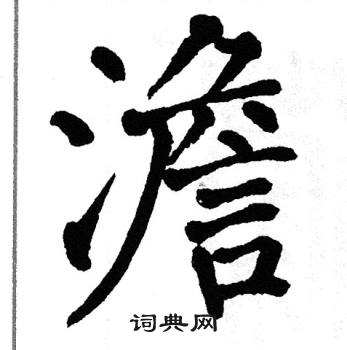 澹
词典网